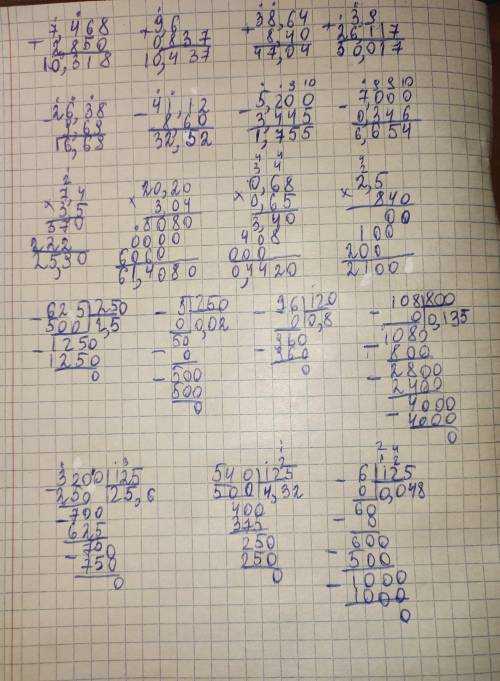 7,468 + 2,850 = 10,318
+ 9,6 0,837 10,437
+ 38,64 8,40 47,04
+ 3,9 26,117 30,017
- 26,38 16,68
- 41,12 8,60 32,52
- 5,200 3,445 1,755
- 7,000 0,346 6,654
× 7,4 3,5 370 222 25,90
× 20,20 3,04 8080 0000 6060 61,4080
× 0,68 0,65 3,40 408 000 0,4420
× 2,5 840 00 100 200 2100
- 625 | 250 500 | 2,5 - 1250 1250 0
- 5 | 250 0 | 0,02 - 50 0 - 500 500 0
- 96 | 120 0 | 0,8 - 960 960 0
- 108 | 800 0 | 0,135 - 1080 800 - 2800 2400 - 4000 4000 0
- 3200 | 125 250 | 25,6 - 700 625 - 750 750 0
540 | 125 500 | 4,32 400 375 250 250 0
- 6 | 125 0 | 0,048 - 60 8 - 600 500 - 1000 1000 0